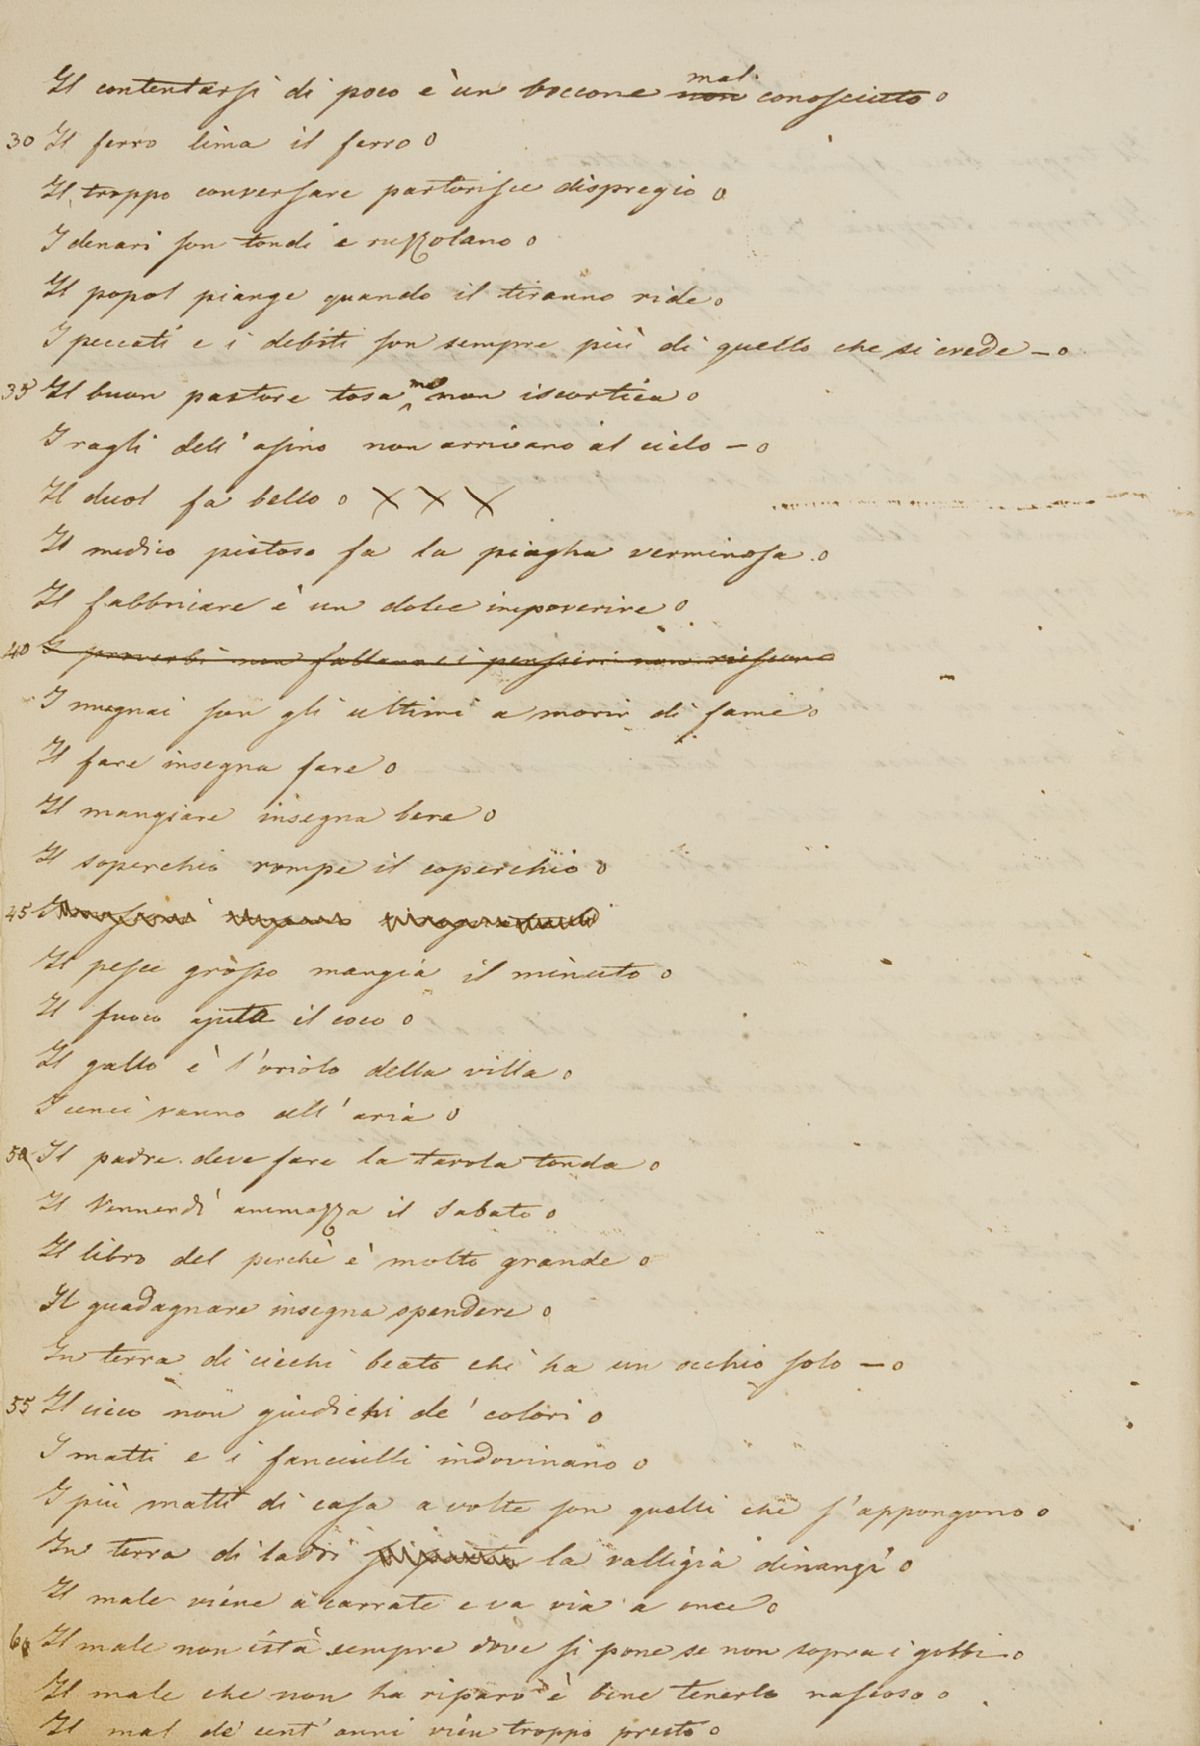 Il contentarsi di poco è un boccone non mal conosciuto o
30 Il ferro lima il ferro o
Il troppo conversare partorisce dispregio o
I denari son tondi e ruzzolano o
Il popol piange quando il tiranno ride o
I peccati e i debiti son sempre più di quello che si crede - o
35 Il buon pastore tosa ma non iscortica o
I ragli dell' asino non arrivano al cielo - o
Il duol fa bello o X X X
Il medico pietoso fa la piagha verminosa o
Il fabbricare è un dolce impoverire o
40 I proverbi non fallano e i pensieri non riescono
I mugnai son gli ultimi a morir di fame o
Il fare insegna fare o
Il mangiare insegna bere o
Il soperchio rompe il coperchio o
45
Il pesce grosso mangia il minuto o
Il fuoco ajuta il coco o
Il gallo è l'oriolo della villa o
I cenci vanno all' aria o
50 Il padre deve fare la tavola tonda o
Il Vennerdì ammazza il Sabato o
Il libro del perchè è molto grande o
Il guadagnare insegna spendere o
In terra di ciechi beato chi ha un occhio solo - o
55 Il cieco non giudichi de' colori o
I matti e i fanciulli indovinano o
I più matti di casa a volte son quelli che s'appongono o
In terra di ladri la valligia dinanzi o
Il male viene a carrate e va via a once o
60 Il male non istà sempre dove si pone se non sopra i gobbi o
Il male che non ha riparo è bene tenerlo nascoso o
Il mal de' cent' anni vien troppo presto o